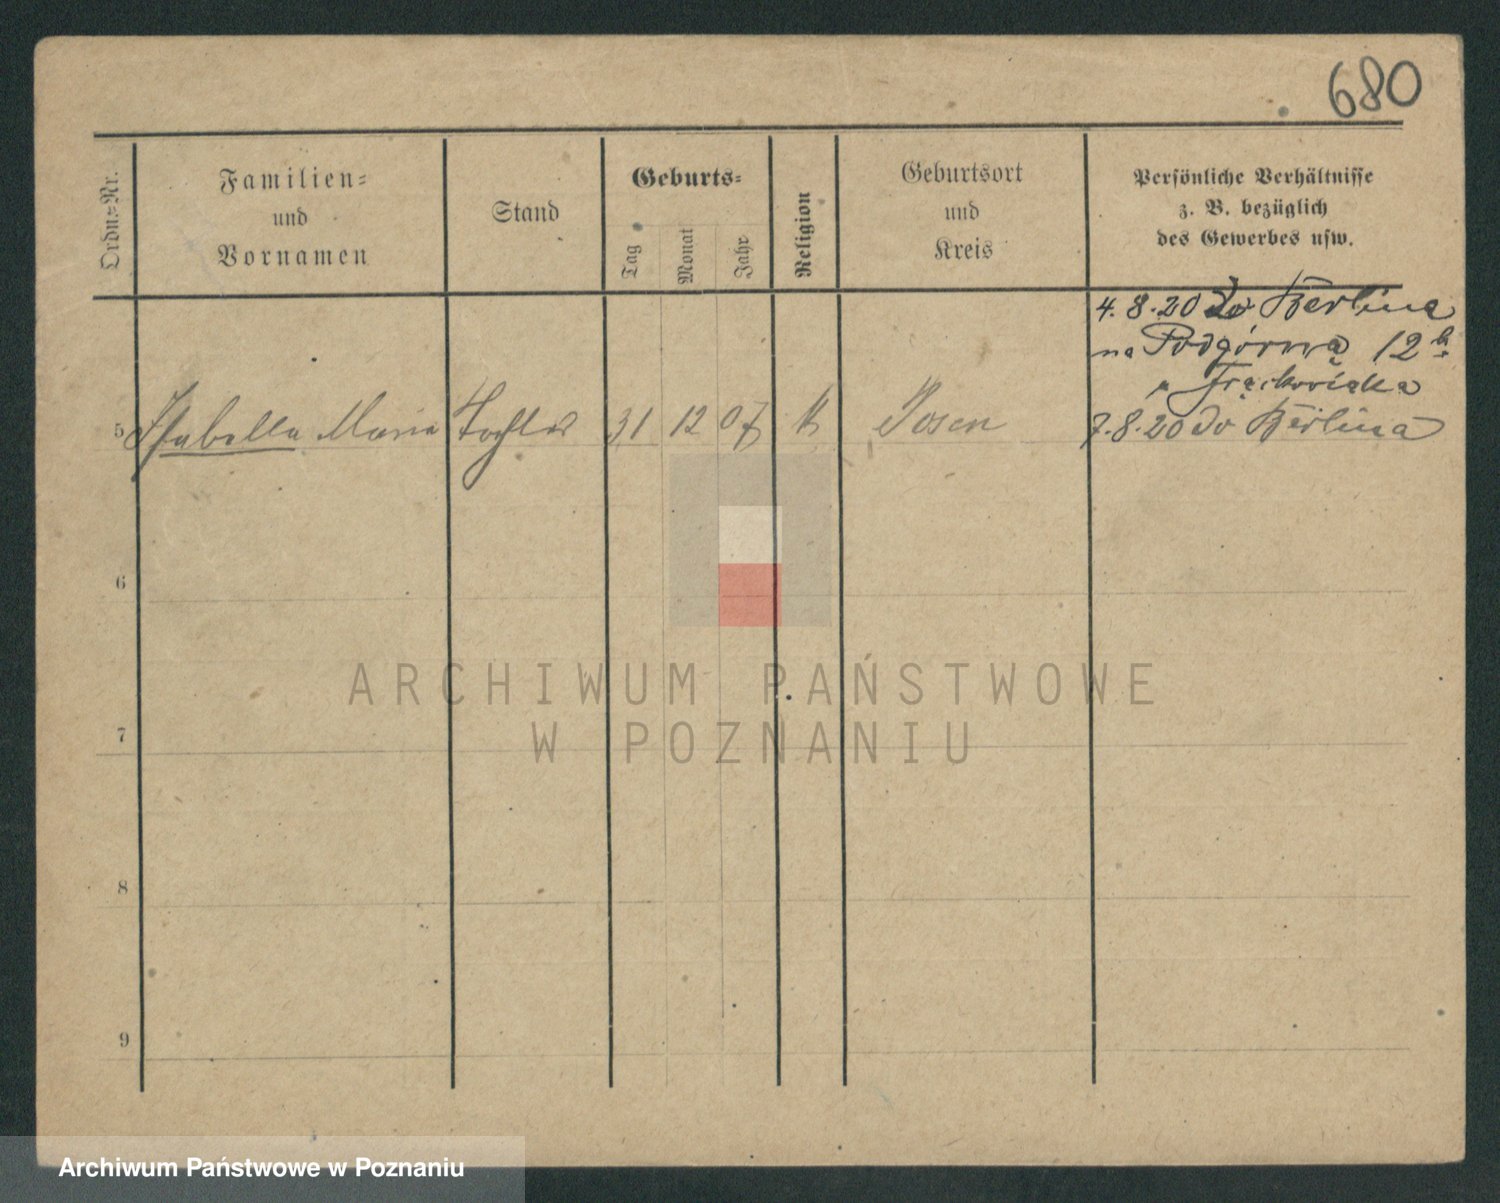 680
Ordn.=Nr.
Familien=
und
Vornamen
Stand
Geburts=
Tag
Monat
Jahr
Religion
Geburtsort
und
Kreis
Persönliche Verhältnisse
z. B. bezüglich
des Gewerbes usw.
4.8.20 do Berlina
na Podgórną 12b
7.8.20 do Berlina
5 Isabella Maria Tochter 31 12 07 k Posen
6
7
8
9
ARCHIWUM PAŃSTWOWE
W POZNANIU
Archiwum Państwowe w Poznaniu